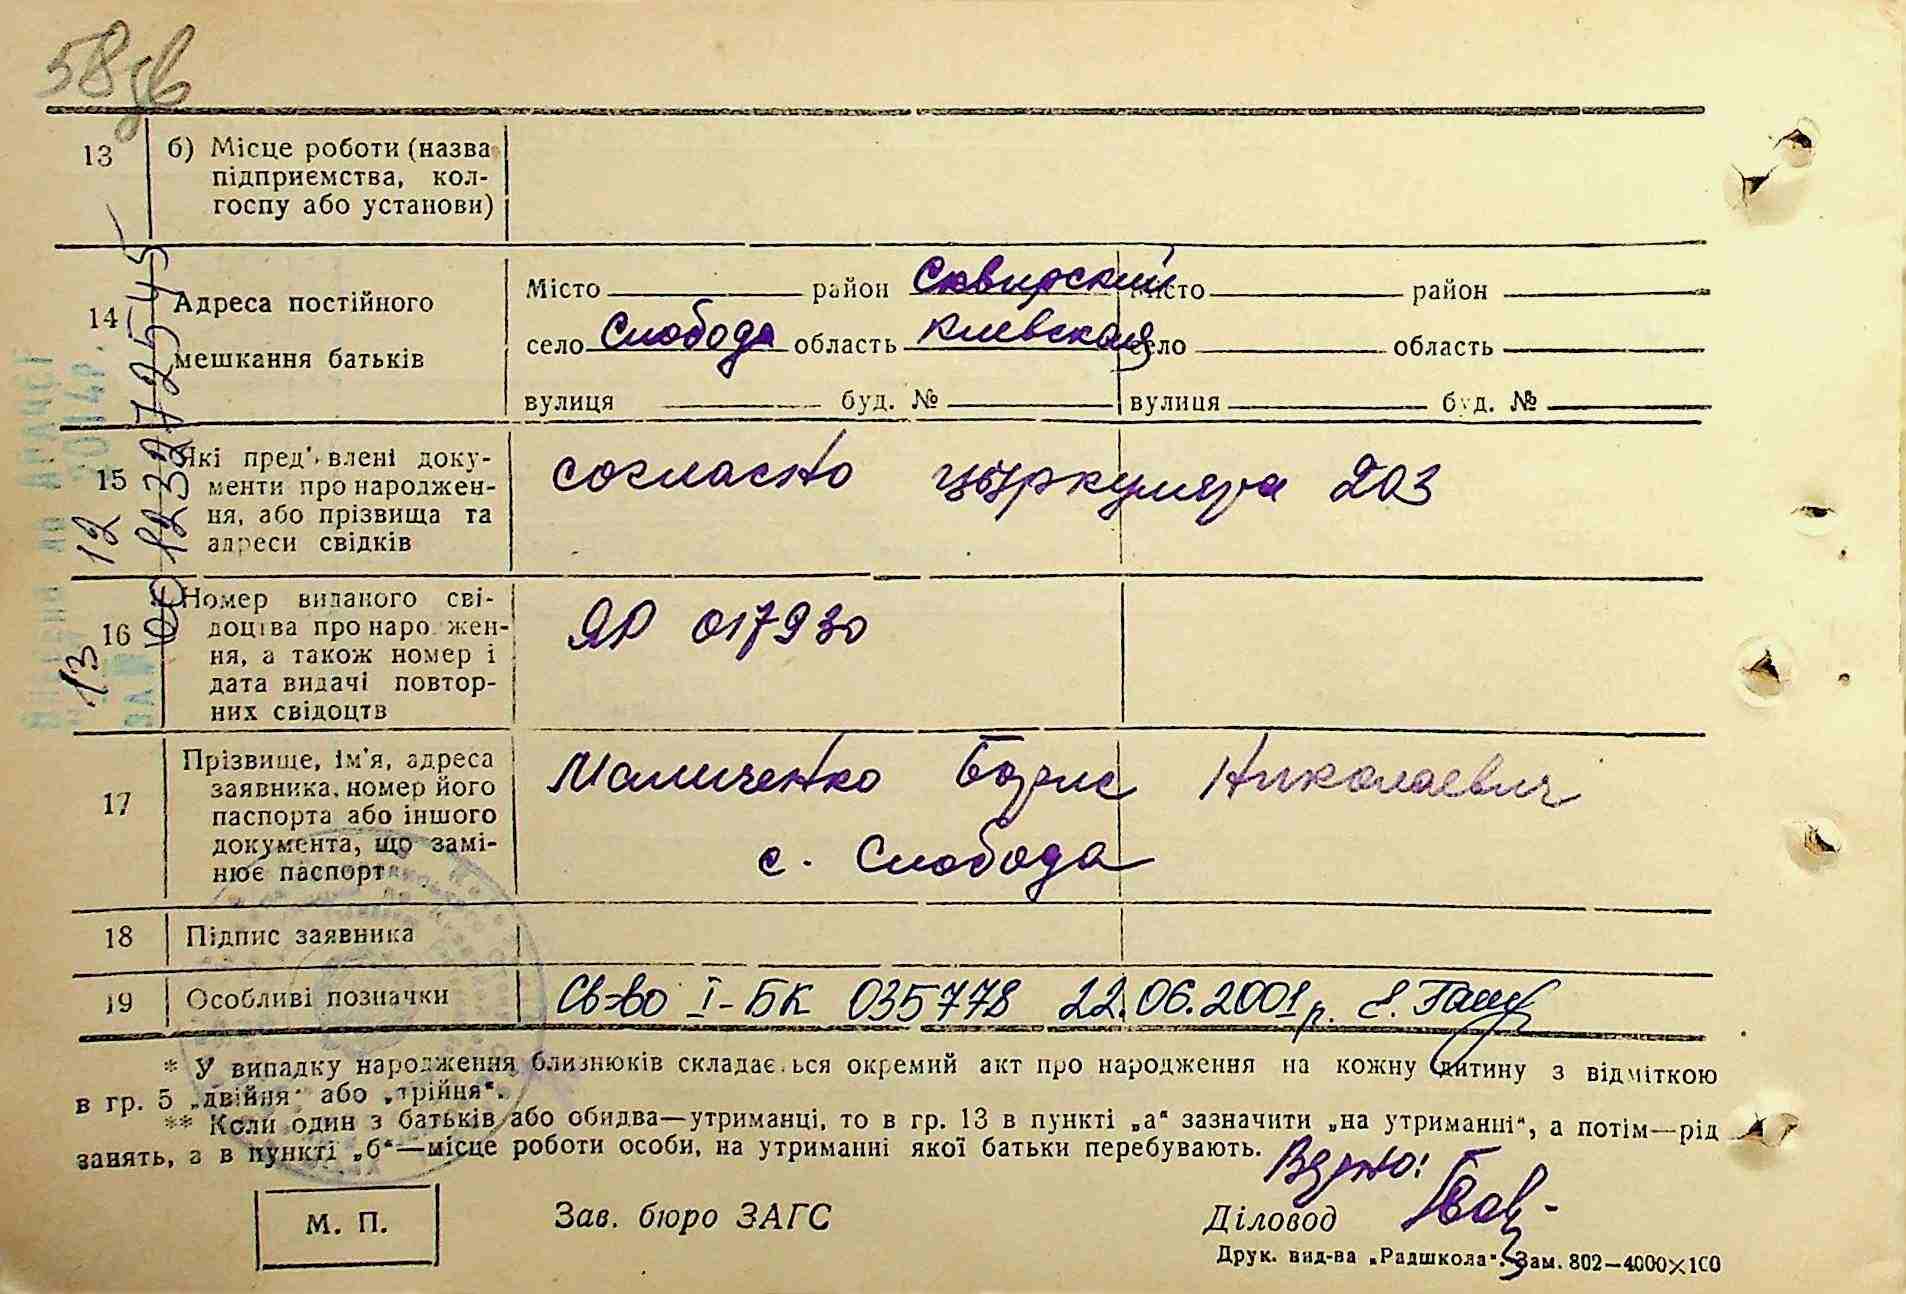 58зв
13 б) Місце роботи (назва
підприємства, кол-
госпу або установи)
14 Адреса постійного
мешкання батьків
Місто район Сквирский Місто район
село Слобода область Киевская село область
вулиця буд. № вулиця буд. №
15 Які пред'влені доку-
менти про народжен-
ня, або прізвища та
адреси свідків
согласно циркуляра 203
16 Номер виданого сві-
доцтва про народжен-
ня, а також номер і
дата видачі повтор-
них свідоцтв
ЯР 017930
17 Прізвище, ім'я, адреса
заявника, номер його
паспорта або іншого
документа, що замі-
нює паспорт
Маличенко Борис Николаевич
с. Слобода
18 Підпис заявника
19 Особливі позначки
Св-во І-БК 035778 22.06.2001р.
* У випадку народження близнюків складається окремий акт про народження на кожну дитину з відміткою
в гр. 5 „двійня“ або „трійня“.
** Коли один з батьків або обидва—утриманці, то в гр. 13 в пункті „а“ зазначити „на утриманні“, а потім—рід
занять, а в пункті „б“—місце роботи особи, на утриманні якої батьки перебувають.
Верно:
М. П.
Зав. бюро ЗАГС
Діловод
Друк. вид-ва „Радшкола“. Зам. 802—4000×100
13 12